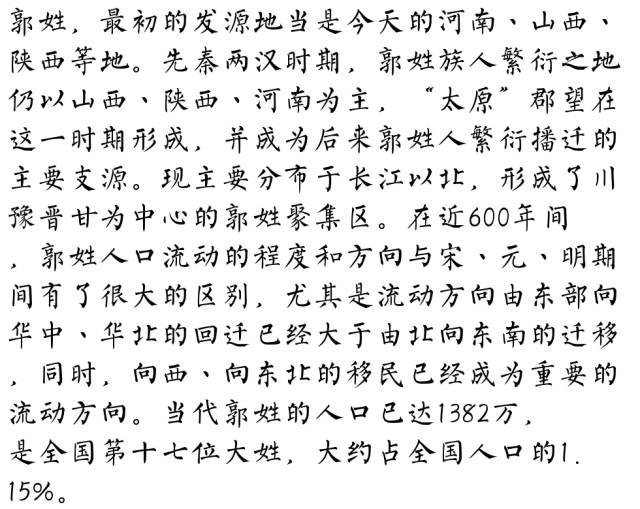 郭姓，最初的发源地当是今天的河南、山西、
陕西等地。先秦两汉时期，郭姓族人繁衍之地
仍以山西、陕西、河南为主，“太原”郡望在
这一时期形成，并成为后来郭姓人繁衍播迁的
主要支源。现主要分布于长江以北，形成了川
豫晋甘为中心的郭姓聚集区。在近600年间
，郭姓人口流动的程度和方向与宋、元、明期
间有了很大的区别，尤其是流动方向由东部向
华中、华北的回迁已经大于由北向东南的迁移
，同时，向西、向东北的移民已经成为重要的
流动方向。当代郭姓的人口已达1382万，
是全国第十七位大姓，大约占全国人口的1.
15%。